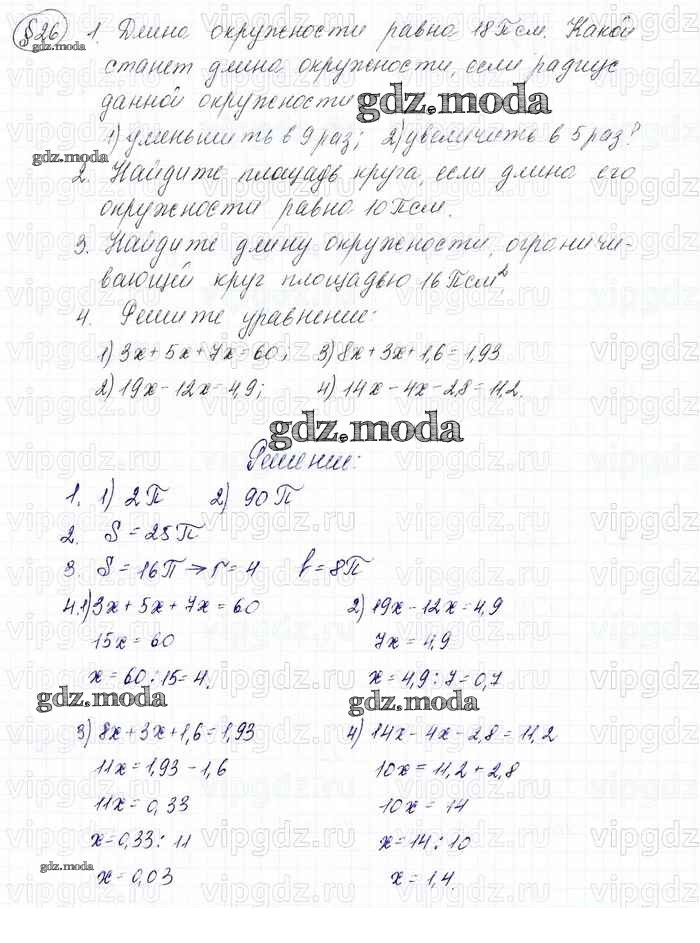 §26 1 Длина окружности равна 18П см. Какой
gdz.moda
станет длина окружности, если радиус
данной окружности
gdz.moda
1) уменьшить в 9 раз; 2) увеличить в 5 раз?
gdz.moda
2. Найдите площадь круга, если длина его
окружности равна 10П см.
3. Найдите длину окружности, ограничи-
вающей круг площадью 16П см²
4. Решите уравнение:
1) 3x+5x+7x=60; 3) 8x+3x+1,6=1,93
2) 19x-12x=4,9; 4) 14x-4x-2,8=11,2.
gdz.moda
Решение:
1. 1) 2П 2) 90П
2. S=25П
3. S=16П→r=4 l=8П
4.1) 3x+5x+7x=60 2) 19x-12x=4,9
15x=60 7x=4,9
x=60:15=4. x=4,9:7=0,7
gdz.moda gdz.moda
3) 8x+3x+1,6=1,93 4) 14x-4x-2,8=11,2
11x=1,93-1,6 10x=11,2+2,8
11x=0,33 10x=14
x=0,33:11 x=14:10
gdz.moda
x=0,03 x=1,4.
vipgdz.ru